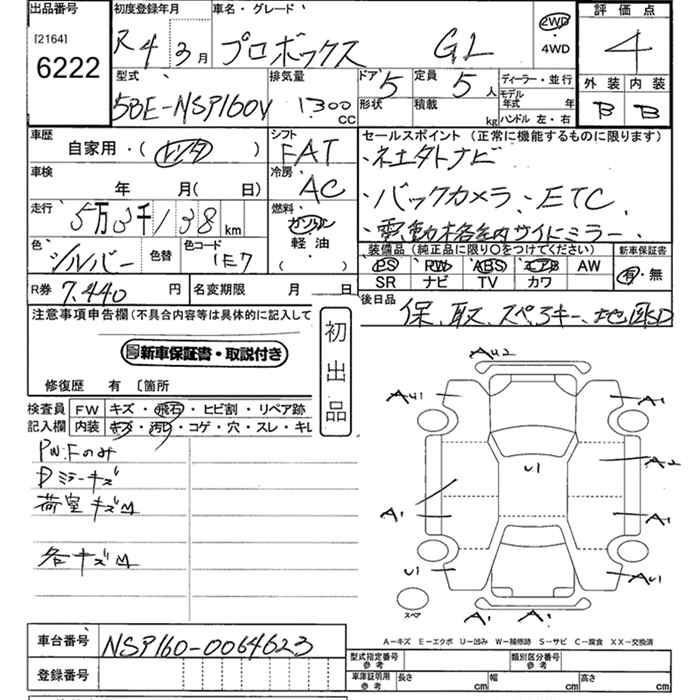 出品番号 初度登録年月 車名・グレード 2WD 評価点
[2164] R4 3月 プロボックス GL ・4WD 4
6222
型式 排気量 ドア 5 定員 5人 ディーラー・並行 外装 内装
5BE-NSP160V 1300 CC 形状 積載 kg モデル年式 年 B B
ハンドル 左・右
車歴 自家用・(レンタ) シフト FAT セールスポイント (正常に機能するものに限ります)
車検 年 月( 日) 冷房 AC
・バックカメラ、ETC
走行 5万3千138km 燃料 ガソリン ・電動格納サイドミラー
色 シルバー 色替 色コード 1E7 軽油 ( ・ ) 装備品(純正品に限り○をつけてください) 新車保証書
PS PW ABS エアB AW 有・無
SR ナビ TV カワ
R券 7.440円 名変期限 月 日 後日品
保、取、スペアキー、地図SD
注意事項申告欄(不具合内容等は具体的に記入して 初出品
新車保証書・取説付き
修復歴 有 〔箇所
検査員 FW キズ・飛石・ヒビ割・リペア跡
記入欄 内装 キズ・汚れ・コゲ・穴・スレ・キレ
P.W.Fのみ
Dミラーキズ
荷室キズM
各キズM
AU2
AU1 A1
U1 A2
A1 A1
U1 AU1
スペア A1 A1
A-キズ E-エクボ U-凹み W-補修跡 S-サビ C-腐食 XX-交換済
車台番号 NSP160-0064623
型式指定番号 参考 類別区分番号 参考
登録番号 車庫証明用 参考 長さ cm 幅 cm 高さ cm